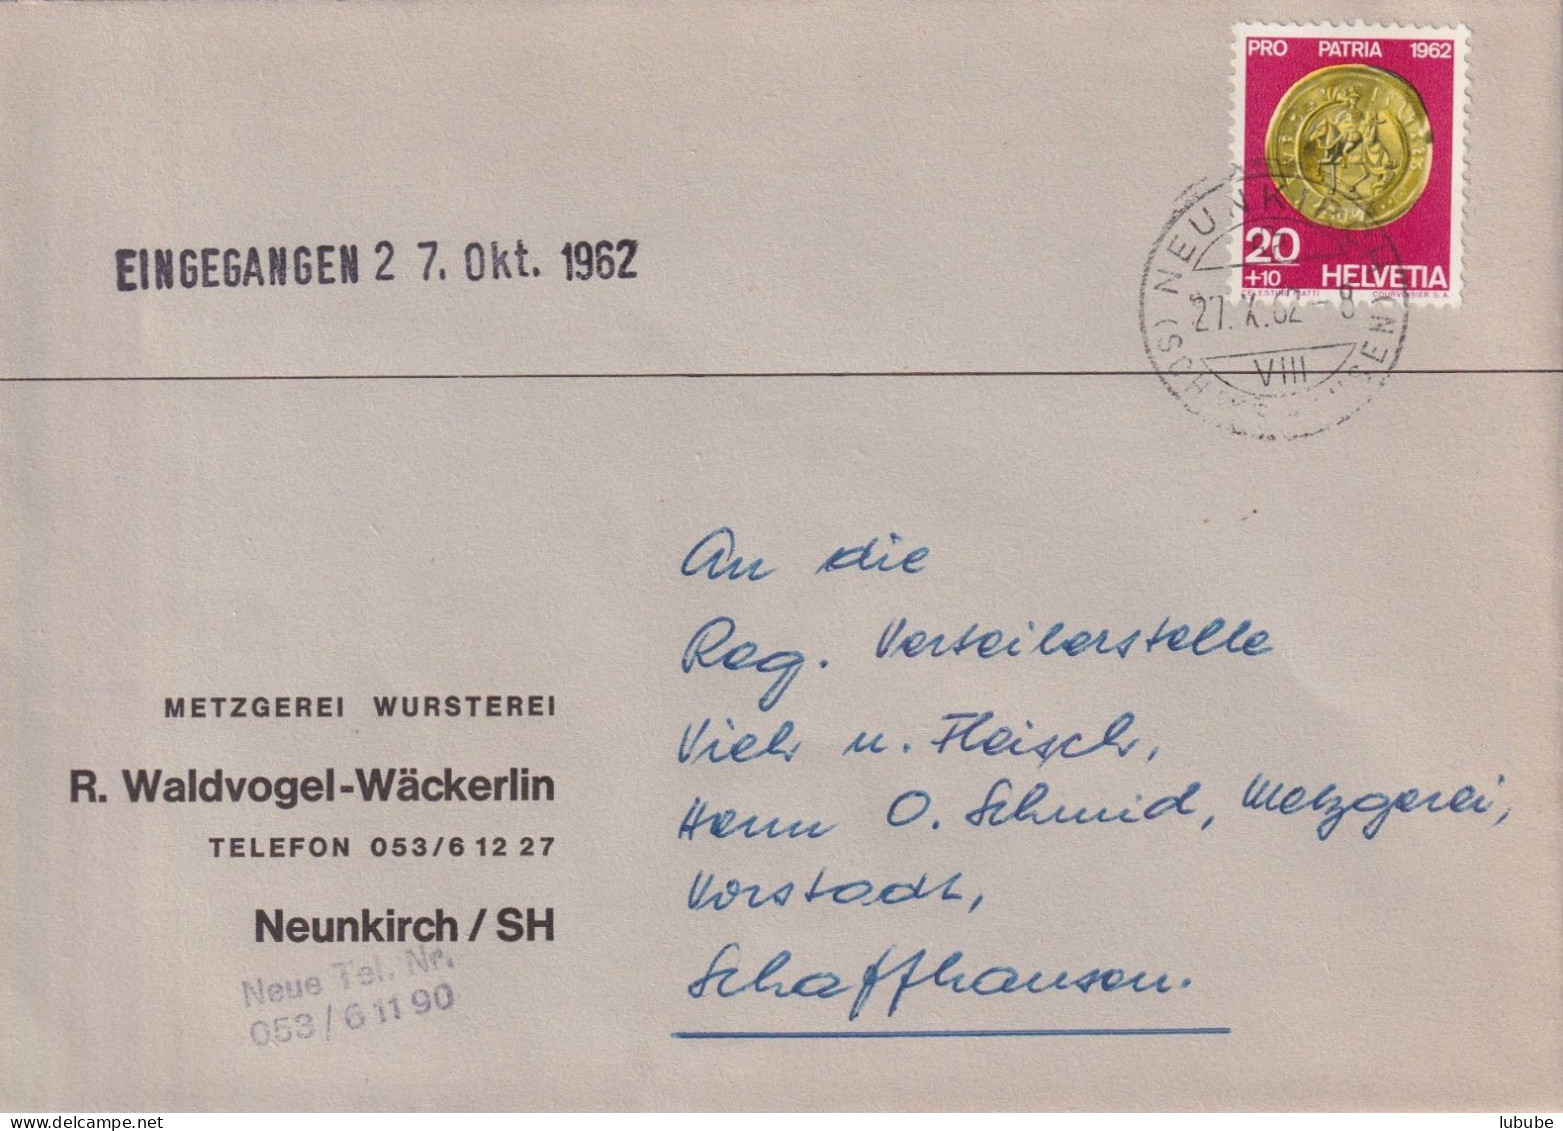 PRO PATRIA 1962
20
+10 HELVETIA
COURVOISIER S.A.
NEUNKIRCH
27.X.62-8
VIII
(SCHAFFHAUSEN)
EINGEGANGEN 27. Okt. 1962
METZGEREI WURSTEREI
R. Waldvogel-Wäckerlin
TELEFON 053/6 12 27
Neunkirch / SH
Neue Tel. Nr.
053 / 6 11 90
An die
Reg. Verteilerstelle
Vieh u. Fleisch,
Herrn O. Schmid, Metzgerei,
Vorstadt,
Schaffhausen.
lubube